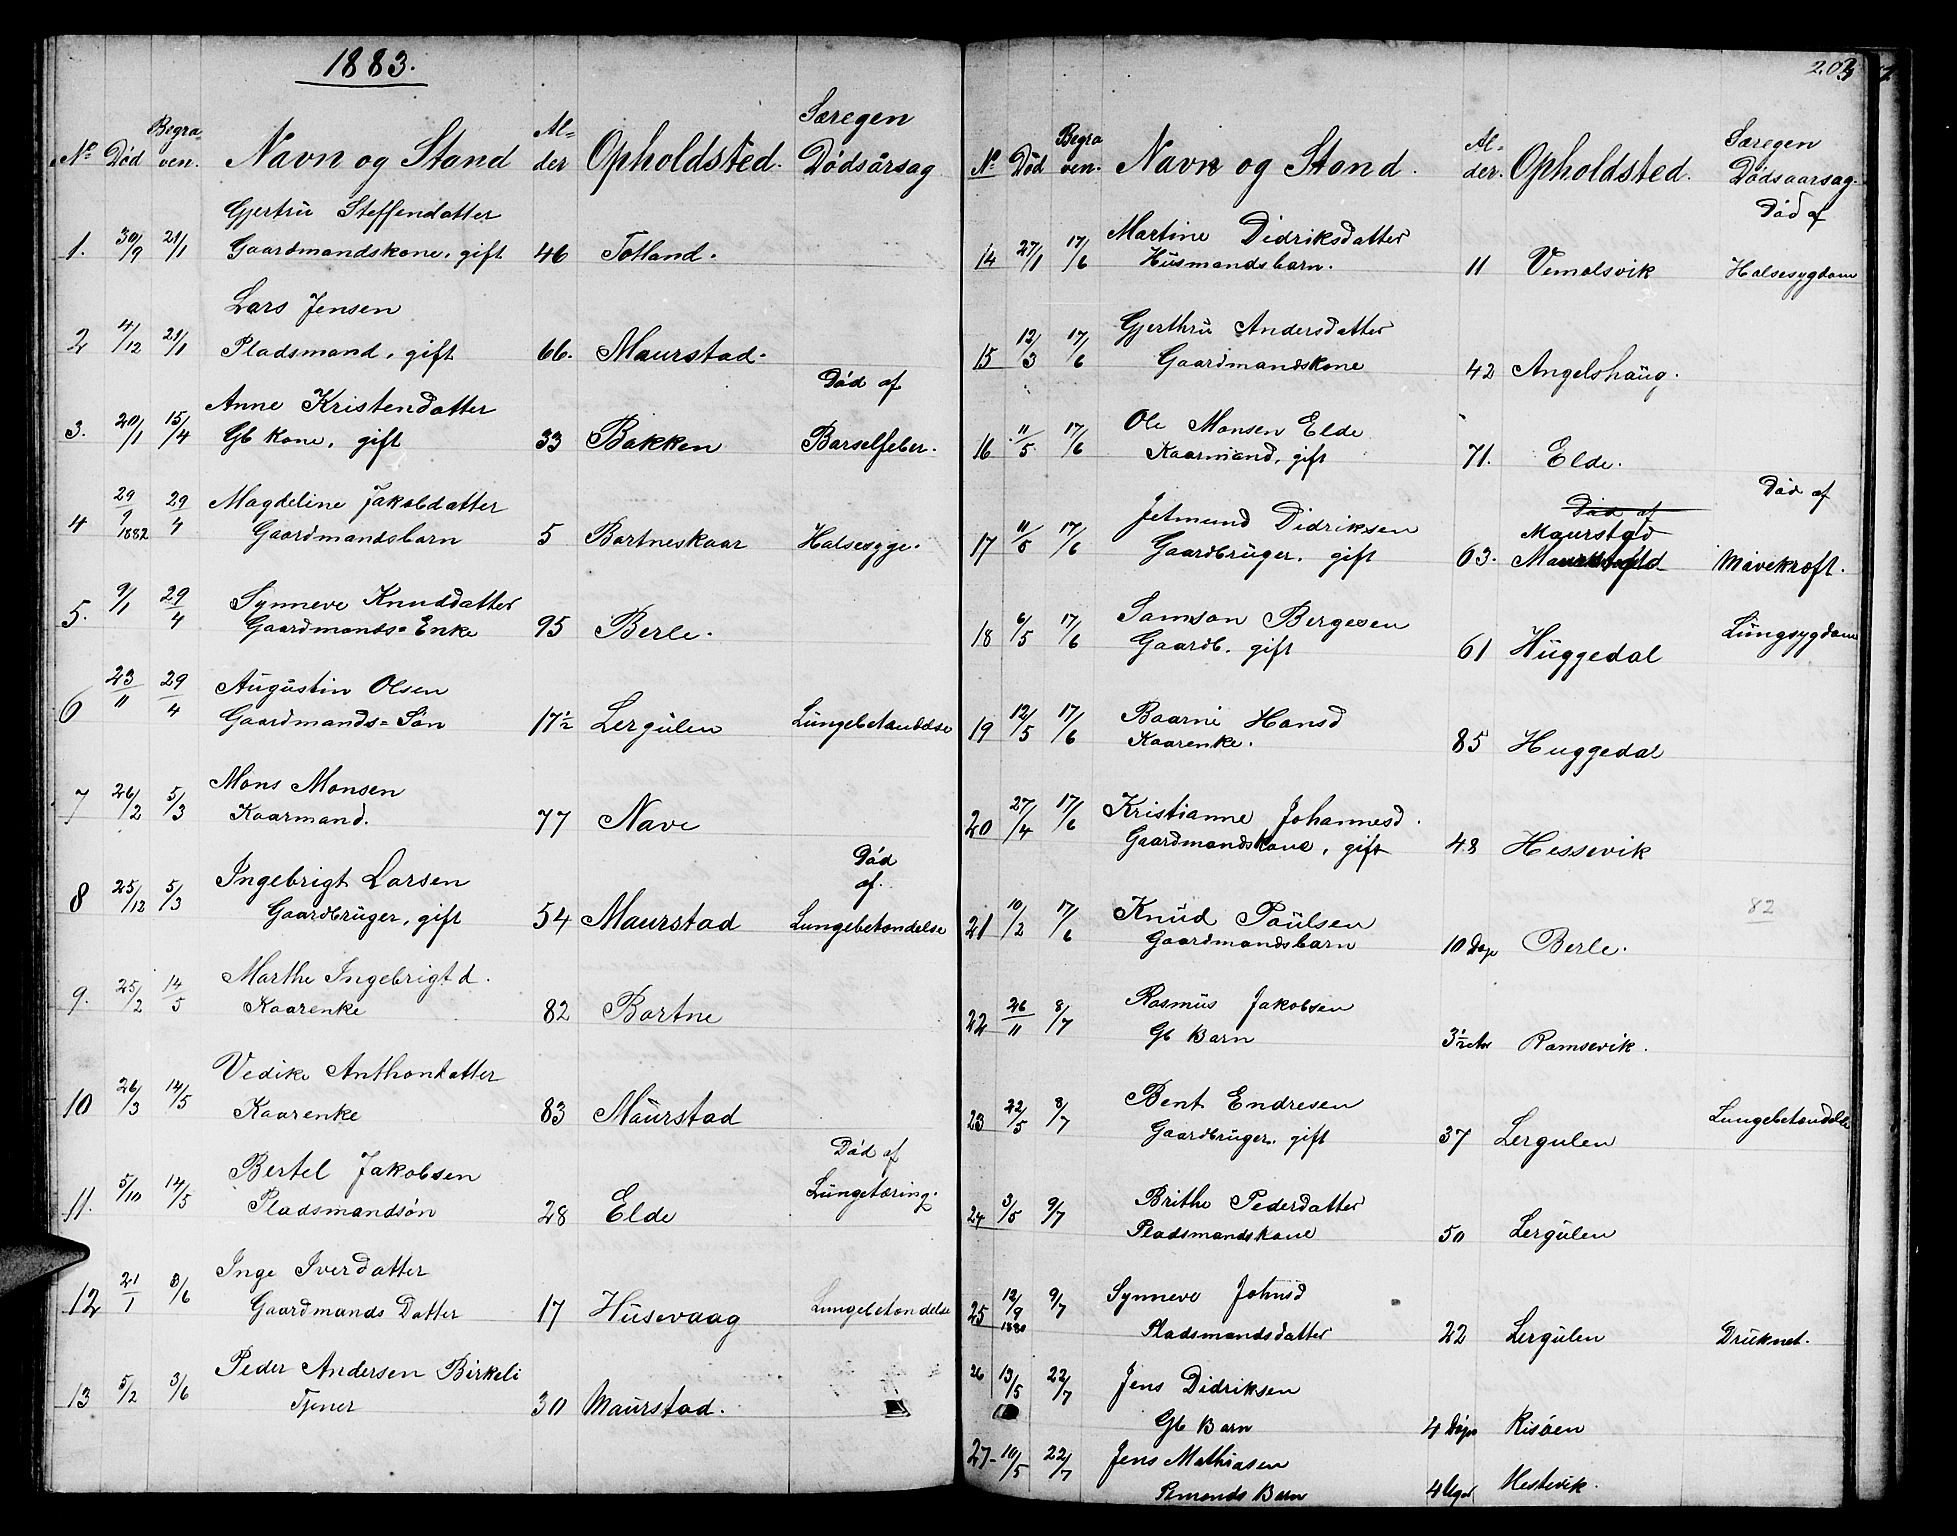 1883.
No Død Begra- ven. Navn og Stand Al= der Opholdsted. Særegen Dødsårsag
1. 30/9 21/1 Gjertru Steffendatter
Gaardmandskone, gift 46 Totland.
2 4/12 21/1 Lars Jensen
Pladsmand, gift 66. Maurstad.
3. 20/1 15/4 Anne Kristendatter Død af
Gb Kone, gift 33 Bakken Barselfeber.
4 29/9 1882 29/4 Magdeline Jakobdatter
Gaardmandsbarn 5 Bortneskaar Halsesyge.
5. 9/1 29/4 Synneve Knuddatter
Gaardmands=Enke 95 Berle.
6 23/11 29/4 Augustin Olsen
Gaardmands=Søn 17½ Lergulen Lungebetændelse
7 26/2 5/3 Mons Monsen
Kaarmand. 77 Nave
8 25/12 5/3 Ingebrigt Larsen Død af.
Gaardbruger, gift 54 Maurstad Lungebetændelse
9. 25/2 14/5 Marthe Ingebrigtd.
Kaarenke 82 Bortne
10 26/3 14/5 Vedike Anthondatter
Kaarenke 83 Maurstad
11. 5/10 14/5 Bertel Jakobsen Død af
Pladsmandsøn 28 Elde Lungetæring.
12 21/1 3/6 Inge Iverdatter
Gaardmands Datter 17 Husevaag Lungebetændelse
13 5/2 3/6 Peder Andersen Birkeli
Tjener 30 Maurstad.
203
No Død Begra ven. Navn og Stand. Al= der. Opholdsted. Særegen Dødsaarsag.
14 27/1 17/6 Martine Didriksdatter Død af
Husmandsbarn. 11 Vemolsvik Halsesygdom
15 12/3 17/6 Gjerthru Andersdatter
Gaardmandskone 42 Angelshaug.
16 11/5 17/6 Ole Monsen Elde
Kaarmand, gift 71. Elde.
17 11/6 17/6 Jetmund Didriksen Død af Død af
Maurstad
Gaardbruger, gift 63. Mavekræft.
18 6/5 17/6 Samson Bergesen
Gaardb. gift 61 Huggedal Lungsygdom
19 12/5 17/6 Baarni Hansd
Kaarenke. 85 Huggedal
20 27/4 17/6 Kristianne Johannesd.
Gaardmandskone, gift 48 Hessevik
21 10/2 17/6 Knud Paulsen 82
Gaardmandsbarn 10 Dage Berle.
22 26/11 8/7 Rasmus Jakobsen
Gb Barn 3½ Aar Ramsevik.
23 22/5 8/7 Bent Endresen
Gaardbruger, gift 37 Lergulen Lungebetændelse
24 3/5 9/7 Brithe Pederdatter
Pladsmandskone 50 Lergulen
25 12/9 1880 9/7 Synneve Johnsd
Pladsmandsdatter 22 Lergulen Druknet.
26 13/5 22/7 Jens Didriksen
Gb Barn 4 Dage Risøen
27- 10/5 22/7 Jens Mathiasen
Pmands Barn 4 Uger Hestevik.